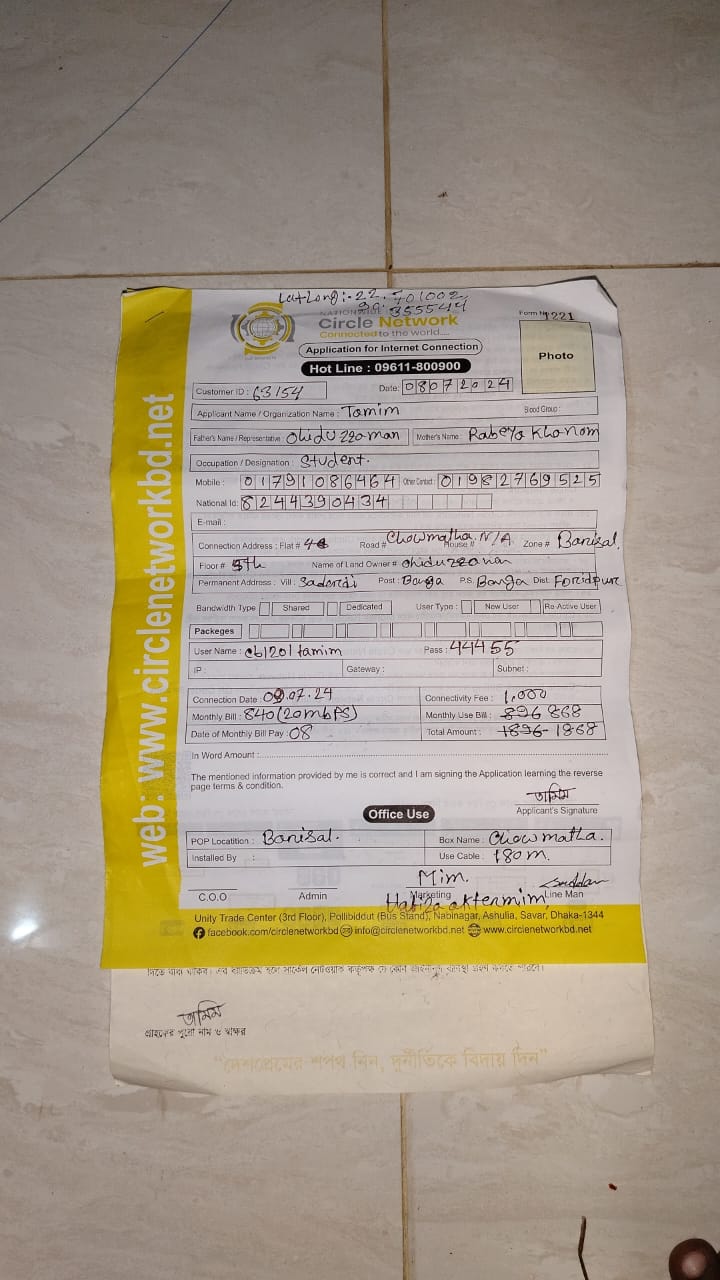 Lat Long :- 22.701002,
90.355544
NATIONWIDE
Form No 1221
Circle Network
Connected to the world....
Application for Internet Connection
Photo
Hot Line : 09611-800900
Customer ID : 63154 Date: 08072024
Applicant Name / Organization Name : Tamim Blood Group :
Father's Name / Representative : Ohiduzzaman Mother's Name : Rabeya Khanom
Occupation / Designation : Student.
Mobile : 01791086464 Other Contact : 01982769525
National Id: 8244390434
E-mail :
Connection Address : Flat # Road # Chowmatha. House # N/A Zone # Barisal.
Floor # 5th Name of Land Owner # Ohiduzzaman
Permanent Address : Vill : Saderdi Post : Banga P.S. Banga Dist. Foridpur
Bandwidth Type Shared Dedicated User Type : New User Re-Active User
Packeges
User Name : cb1201tamim Pass : 44455
IP : Gateway : Subnet :
Connection Date : 09.07.24 Connectivity Fee : 1,000
Monthly Bill : 840 (20mbps) Monthly Use Bill : 896 868
Date of Monthly Bill Pay : 08 Total Amount : 1896 1868
In Word Amount :
The mentioned information provided by me is correct and I am signing the Application learning the reverse
page terms & condition.
তামিম
Applicant's Signature
Office Use
POP Locatition : Barisal. Box Name : Chowmatha.
Installed By : Use Cable : 180m.
Mim.
C.O.O Admin Marketing Line Man
Habiba aktermim
Unity Trade Center (3rd Floor), Pollibiddut (Bus Stand), Nabinagar, Ashulia, Savar, Dhaka-1344
facebook.com/circlenetworkbd info@circlenetworkbd.net www.circlenetworkbd.net
web: www.circlenetworkbd.net
তামিম
গ্রাহকের পুরো নাম ও স্বাক্ষর
“দেশপ্রেমের শপথ নিন, দুর্নীতিকে বিদায় দিন”